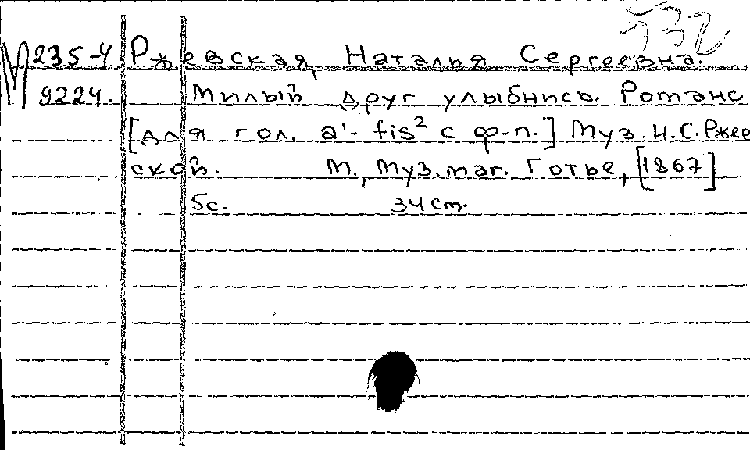 532
М 235-4 Ржевская, Наталья Сергеевна.
9224. Милый друг улыбнись. Романс
[для гол. a¹- fis² с ф-п.] Муз. Н.С. Ржев
ской. М., Муз. маг. Готье, [1867]
5с. 34 см.